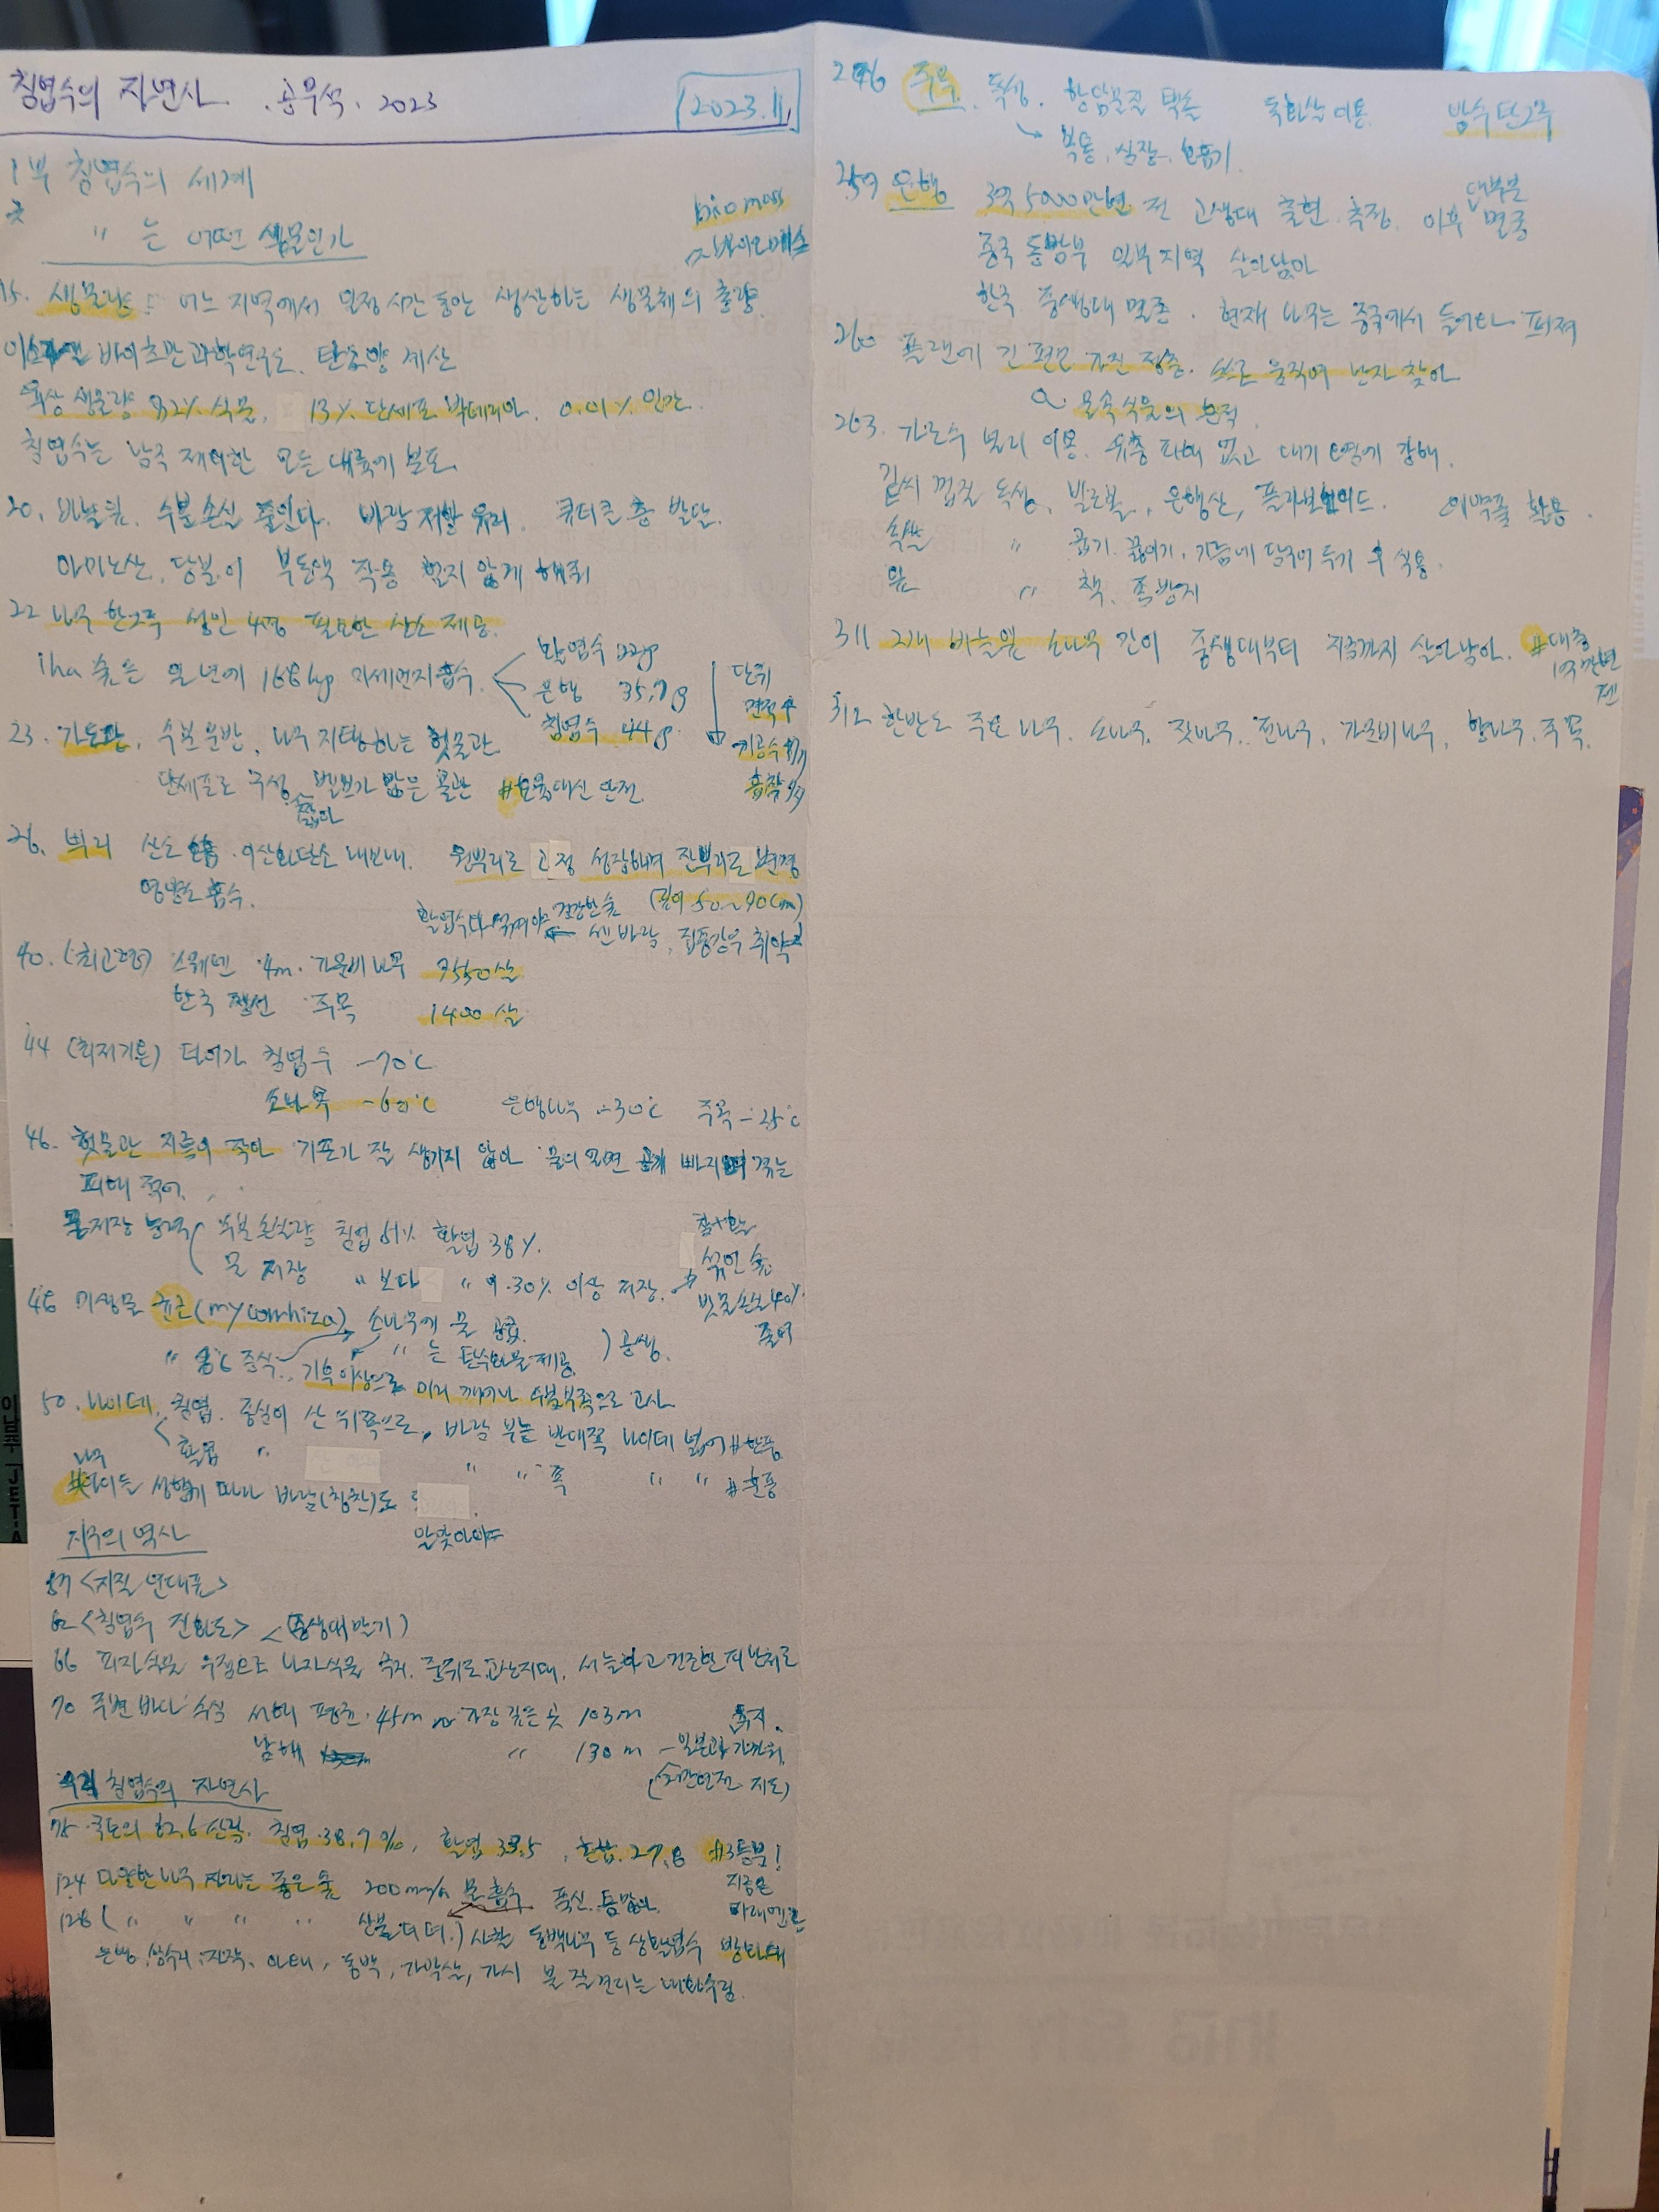 침엽수의 자연사. 공우석. 2023
2023.11
1부 침엽수의 세계
" 는 어떤 생물인가
biomass
바이오매스
15. 생물량 : 어느 지역에서 일정시간 동안 생산하는 생물체의 총량.
바이츠만과학연구소. 탄소량 계산
육상 생물량 82% 식물, 13% 단세포 박테리아. 0.01% 인간.
침엽수는 남극 제외한 모든 대륙에 분포.
20. 바늘잎. 수분손실 줄인다. 바람 저항 유리. 큐티클 층 발달.
아미노산, 당분이 부동액 작용 얼지 않게 해줘
22 나무 한그루 성인 4명 필요한 산소 제공.
1ha 숲은 일년에 168kg 미세먼지흡수.
활엽수 22g
은행 35.7g
침엽수 44g.
단위
면적 수
기공수
흡착
23. 가도관. 수분운반, 나무지탱하는 헛물관.
단세포로 구성 밸브가 많은 골관 #효율대신 안전.
좁아
26. 뿌리 산소 흡. 이산화탄소 내보내. 원뿌리로 고정 성장하며 잔뿌리로 변경
영양소 흡수. (깊이 50~90cm)
활엽수와 섞여야 건강한 숲 센바람, 집중강우 취약
40. (최고령) 스웨덴 4m. 가문비나무 9550살
한국 정선 주목 1400살
44 (최저기온) 타이가 침엽수 -70℃
소나무 -60℃ 은행나무 -30℃ 주목 -25℃
46. 헛물관 지름이 작아 기포가 잘 생기지 않아 물의 표면 공기 빠지며 겪는
피해 적어.
물저장 능력 수분손실량 침엽 51% 활엽 38%.
물 저장 " 보다 " 이 30% 이상 저장.
침+활
섞인 숲
빗물손실 40%
줄여
48 미생물 균근(mycorrhiza) 소나무에 물 공급.
" 는 탄수화물 제공 ) 공생.
" 8℃ 증식. 기후이상으로 미리 깨어나 수분부족으로 고사
50. 나이테. 침엽. 중심이 산 위쪽으로, 바람 부는 반대쪽 나이테 넓어 #한풍
활엽 " " " 쪽 " " #훈풍
나무
#아이들 성향에 따라 바람(칭찬)도
알맞아야
지구의 역사
57 <지질 연대표>
62 <침엽수 진화도> (중생대말기)
66 피자식물 우점으로 나자식물 축소. 극지, 고산지대, 서늘하고 건조한 피난처로
70 주변 바다 수심 서해 평균 45m 가장 깊은 곳 103m
남해 " 130m - 일본과 가까워
육지.
(최간연전 지도)
우리 침엽수의 자연사
75 국토의 62.6 산림. 침엽 38.7%, 활엽 33.5, 혼합 27.8 #3등분!
124 다양한 나무 자라는 좋은 숲 200mm/h 물 흡수 폭신. 틈많아.
지중은
아래에
126 ( " " " " 산불 더뎌.) 사철 동백나무 등 상활엽수 방화대
은행, 상수리, 자작, 아왜, 동백, 가막살, 가시 불 잘견디는 내화수림.
246 주목. 독성. 항암물질 택솔 독화살 이용. 방수탄고주
복통, 심장, 호흡기.
257 은행 3억5000만년 전 고생대 출현 추정. 이후 대부분 멸종
중국 동방부 일부지역 살아남아
한국 중생대 멸종. 현재 나무는 중국에서 들어와 퍼져
260 플랜에 긴 편모 가진 정충. 스스로 움직여 난자 찾아
물속식물의 흔적
263. 가로수 널리 이용. 해충 피해 없고 대기오염에 강해.
겉씨 껍질 독성, 발로볼, 은행산, 플라보노이드. 의약품 활용.
속씨 " 굽기. 끓이기, 기름에 담구어 두기 후 식용.
잎 " 책. 좀방지
311 2개 바늘잎 소나무 같이 중생대부터 지금까지 살아남아. #대충
1억만년
전
312 한반도 주요 나무. 소나무, 잣나무, 전나무, 가문비나무, 향나무, 주목.